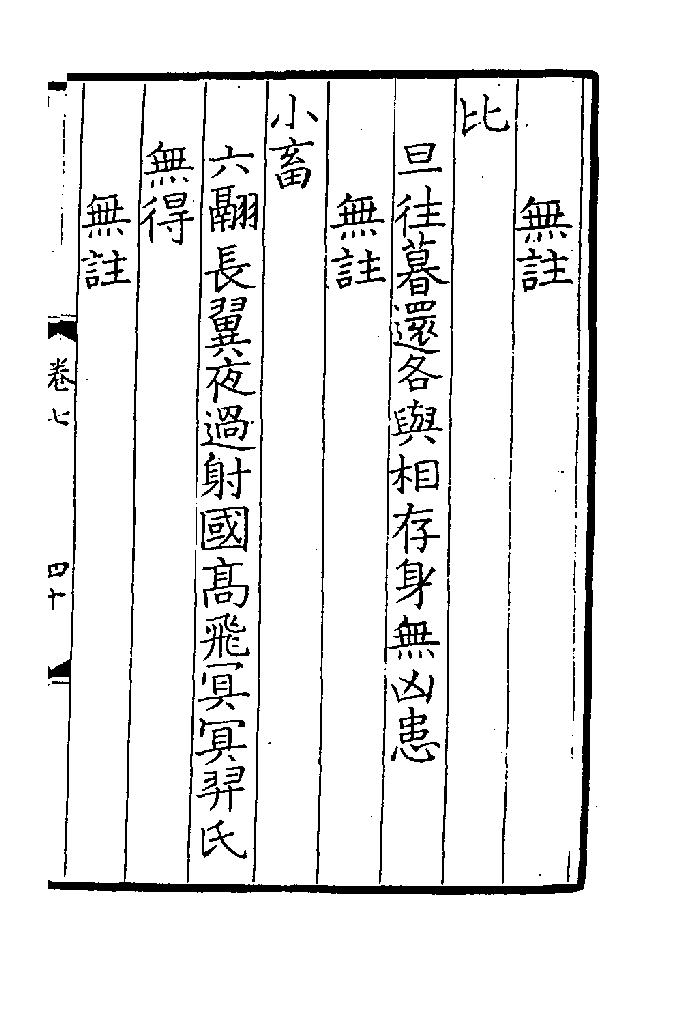 無註
比
旦往暮還各與相存身無凶患
無註
小畜
六翮長翼夜過射國高飛冥冥羿氏
無得
無註
卷七
四十